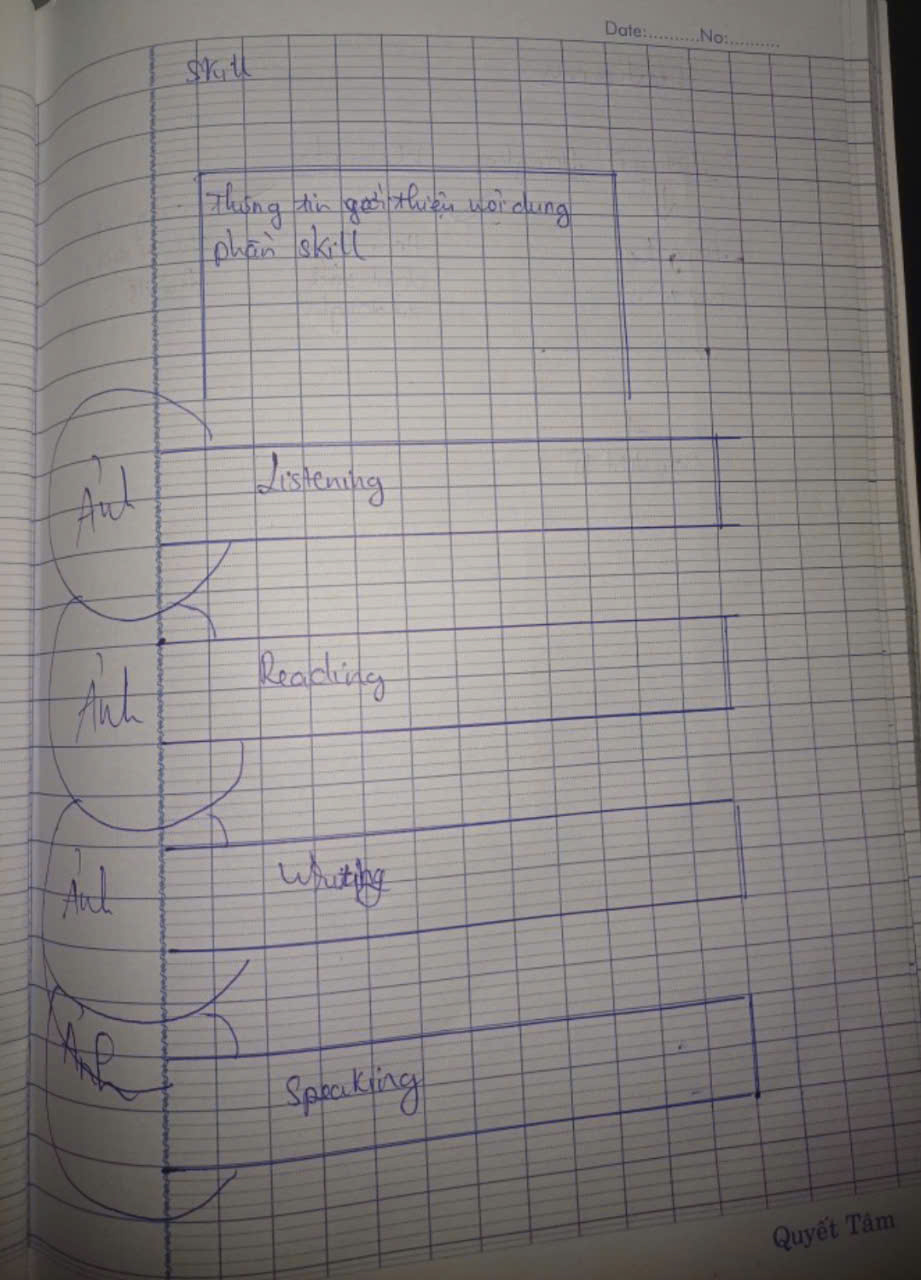 Date:..........No:..........
Skill
Thông tin giới thiệu nội dung
phần skill
Ảnh
Listening
Ảnh
Reading
Ảnh
Writing
Ảnh
Speaking
Quyết Tâm